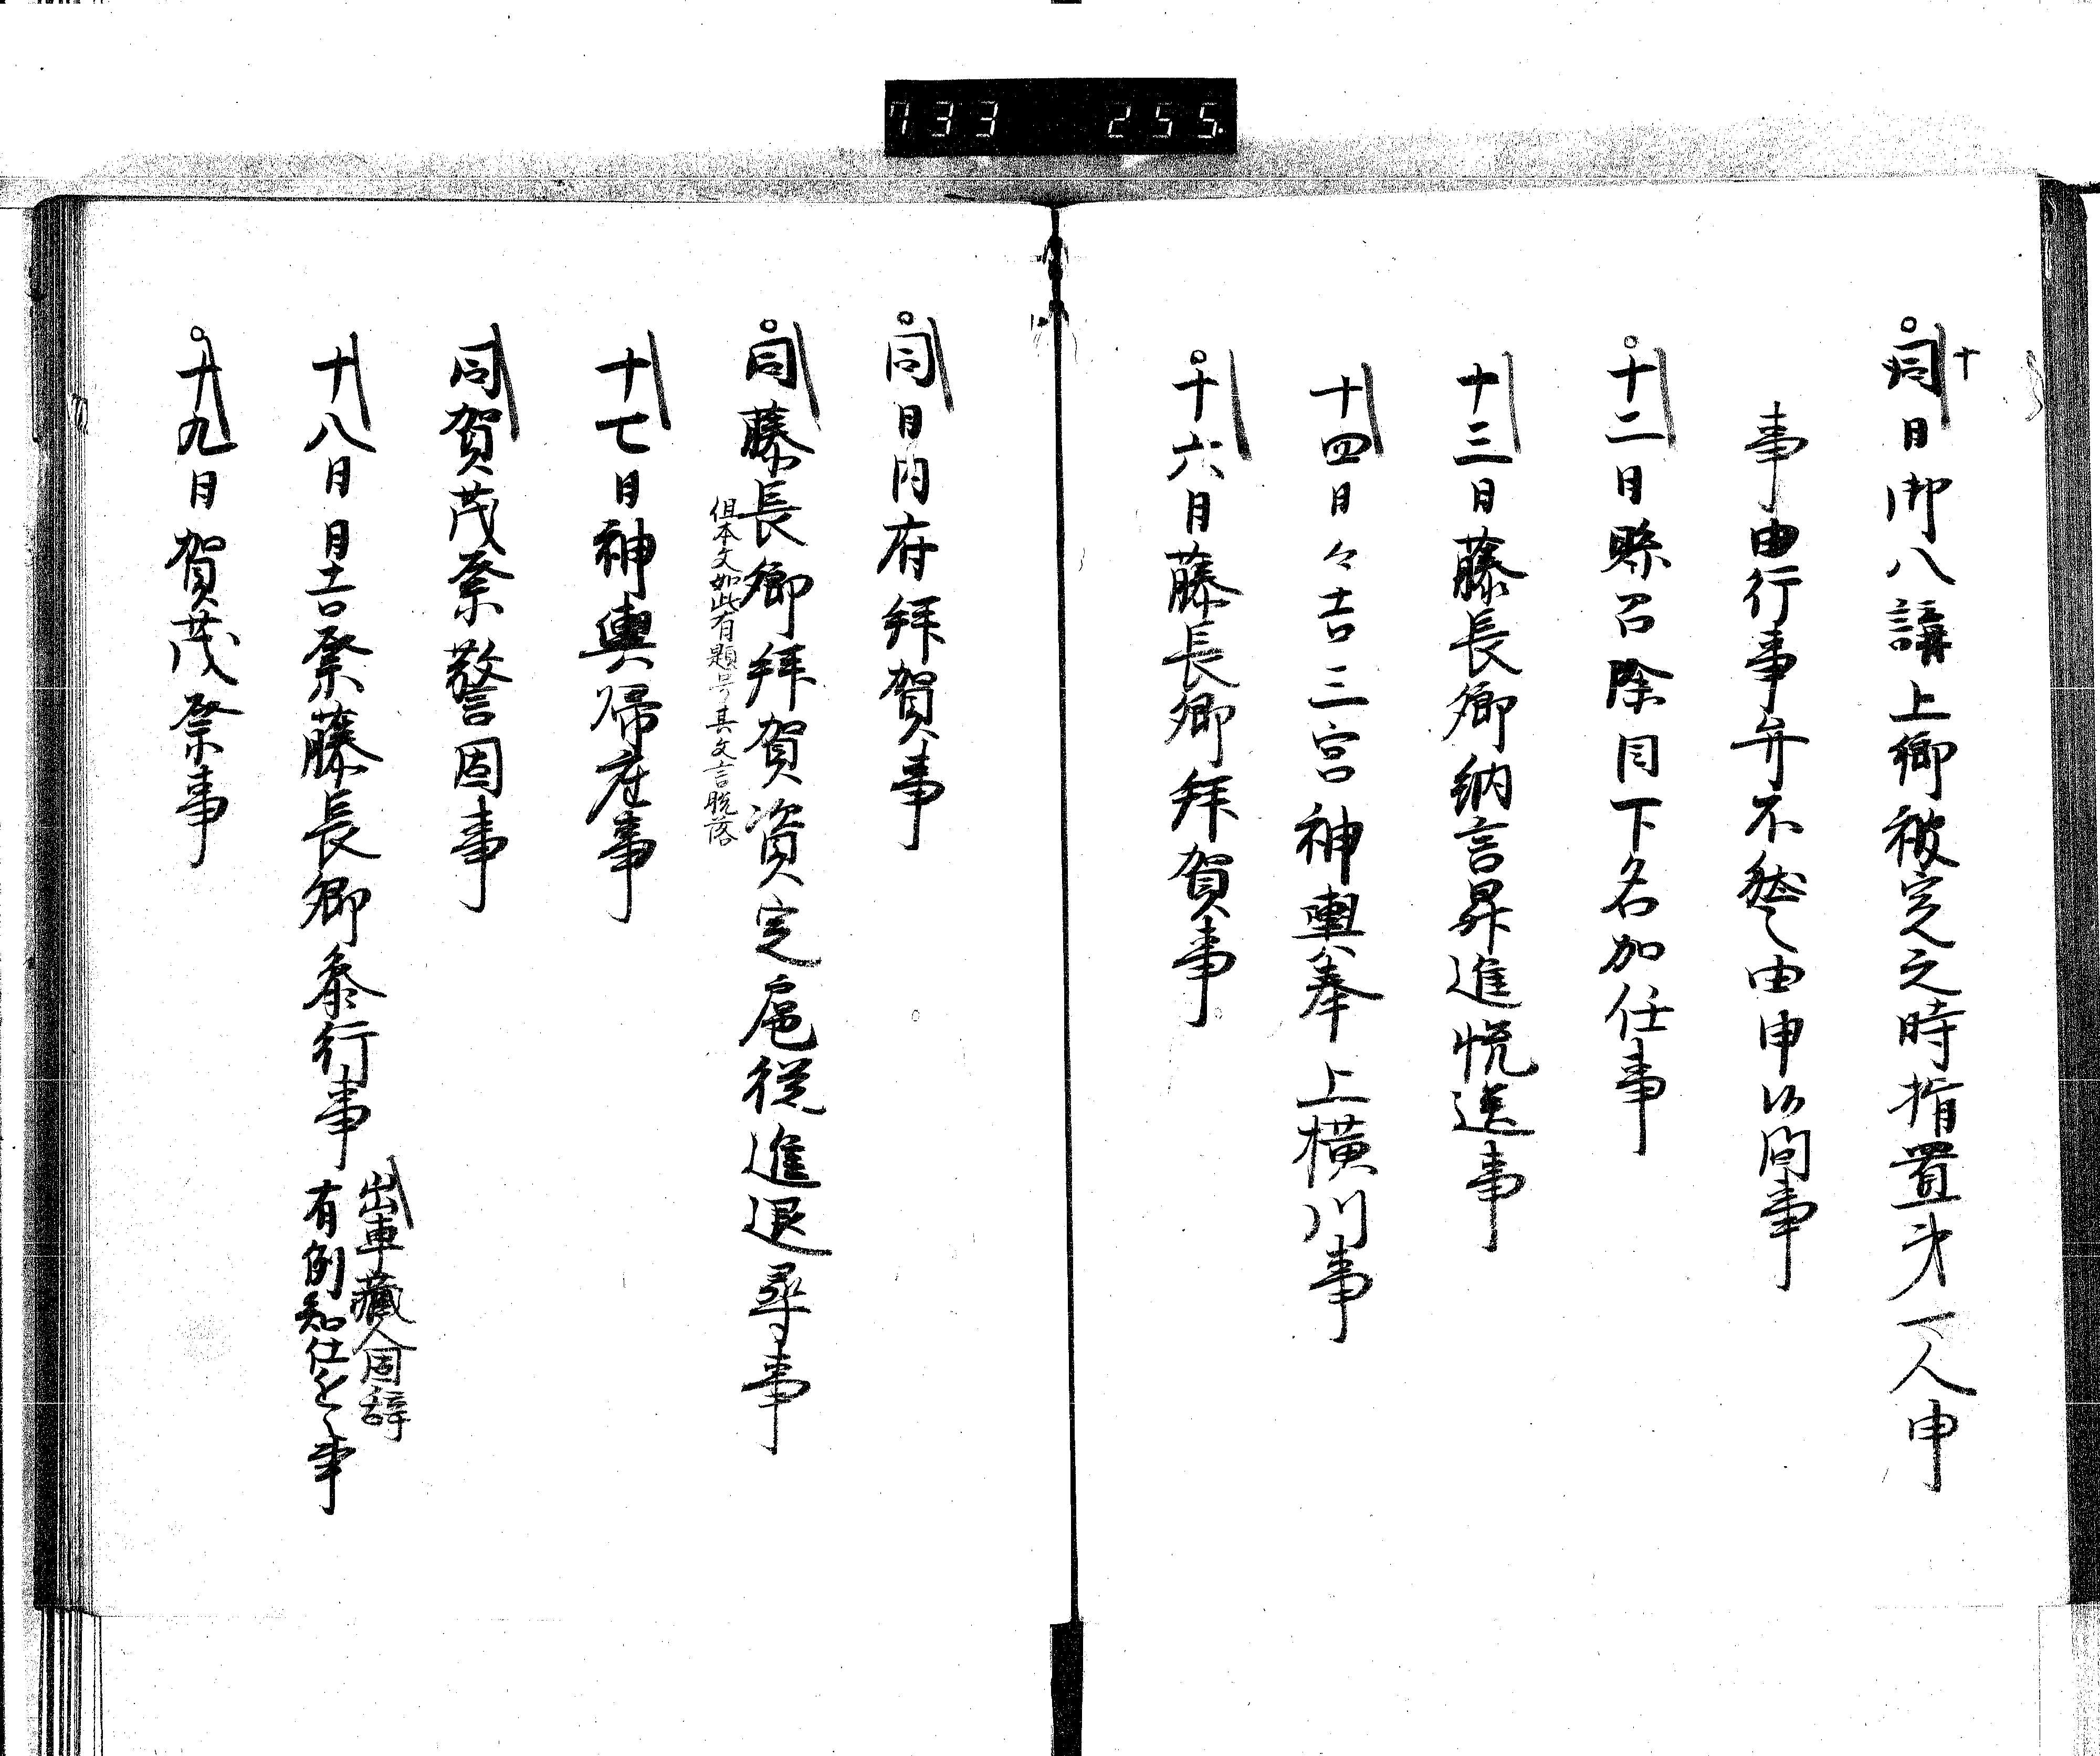 733 255
十
同日御八講上卿被定之時指置第一人申
事由行事弁不然之由申以問事
十二日縣召除目下名加任事
十三日藤長卿納言昇進悦送事
十四日々吉三宮神輿奉上横川事
十六日藤長卿拜賀事
同日内府拜賀事
同藤長卿拜賀資定扈従進退尋事
但本文如此有題号其文言脱落
十七日神輿帰座事
同賀茂祭警固事
十八日日吉祭藤長卿参行事
出車蔵人固辞
有例知仕之事
十九日賀茂祭事